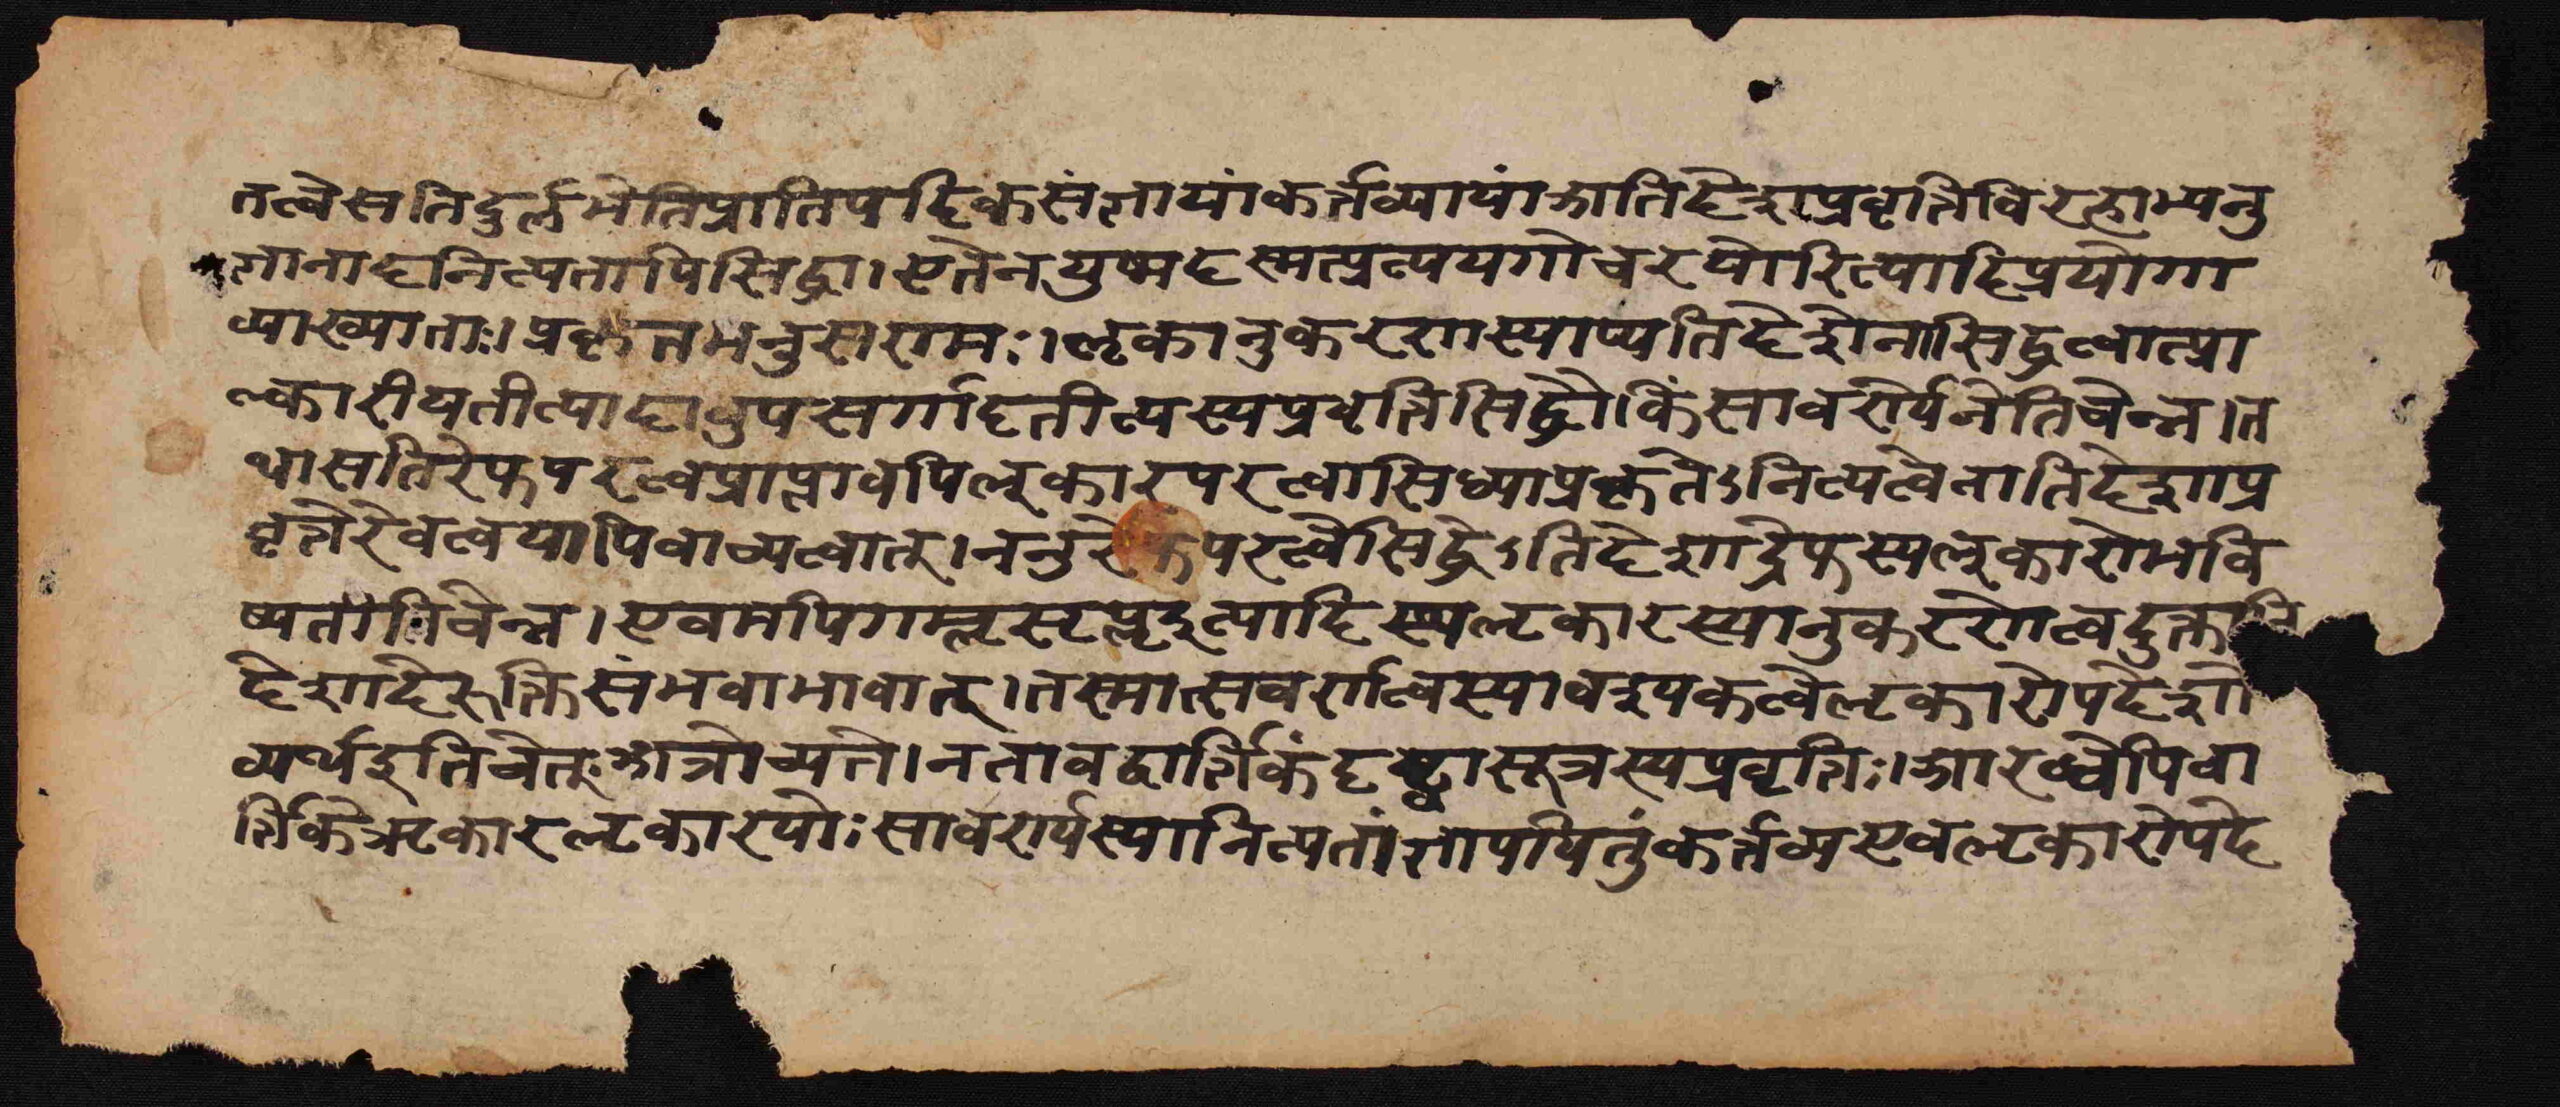 तत्वेसतिदुर्लभेतिप्रातिपदिकसंज्ञायांकर्तव्यायांअतिदेशाप्रवृत्तिविरहाभ्यनु
ज्ञानादनित्यतापिसिद्धा। एतेनयुष्मदस्मत्प्रत्ययगोचरयोरित्यादिप्रयोगा
व्याख्याताः। प्रकृतमनुसरामः। ऌकानुकरणस्याप्यतिदेशेनासिद्धत्वात्प्रा
ल्कारीयतीत्यादावुपसर्गादृतीत्यस्यप्रवृत्तिसिद्धौ। किंसावर्ण्येनेतिचेन्न। त
थासतिरेफपरत्वप्राप्तावपिल्कारपरत्वासिध्याप्रकृतेऽनित्यत्वेनातिदेशाप्र
वृत्तेरेवत्वयापिवाच्यत्वात्। ननुरेफपरत्वेसिद्धेऽतिदेशाद्रेफस्यल्कारोभवि
ष्यतीतिचेन्न। एवमपिगम्लृसृप्लृइत्यादिस्थलृकारस्यानुकरणेत्वदुक्ताति
देशादेरुक्तिसंभवाभावात्। तस्मात्सवर्णत्वस्यावश्यकत्वेऌकारोपदेशो
व्यर्थइतिचेत् अत्रोच्यते। नतावद्वार्तिकंदृष्ट्वासूत्रस्यप्रवृत्तिः। आरब्धेपिवा
र्तिकेऋकारऌकारयोः सावर्ण्यस्यानित्यतांज्ञापयितुंकर्तव्यएवऌकारोपदे